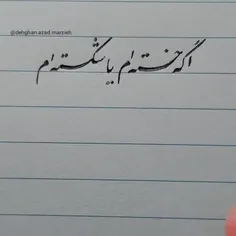 @dehghan.azad.marzieh
اگه خسته‌ام یا شکسته‌ام